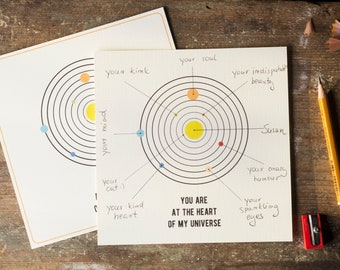 your soul
your kink
your indisputable
beauty
your mind
Susan
your crazy
humour
your
cat :)
your kind
heart
your
sparkling
eyes
YOU ARE
AT THE HEART
OF MY UNIVERSE